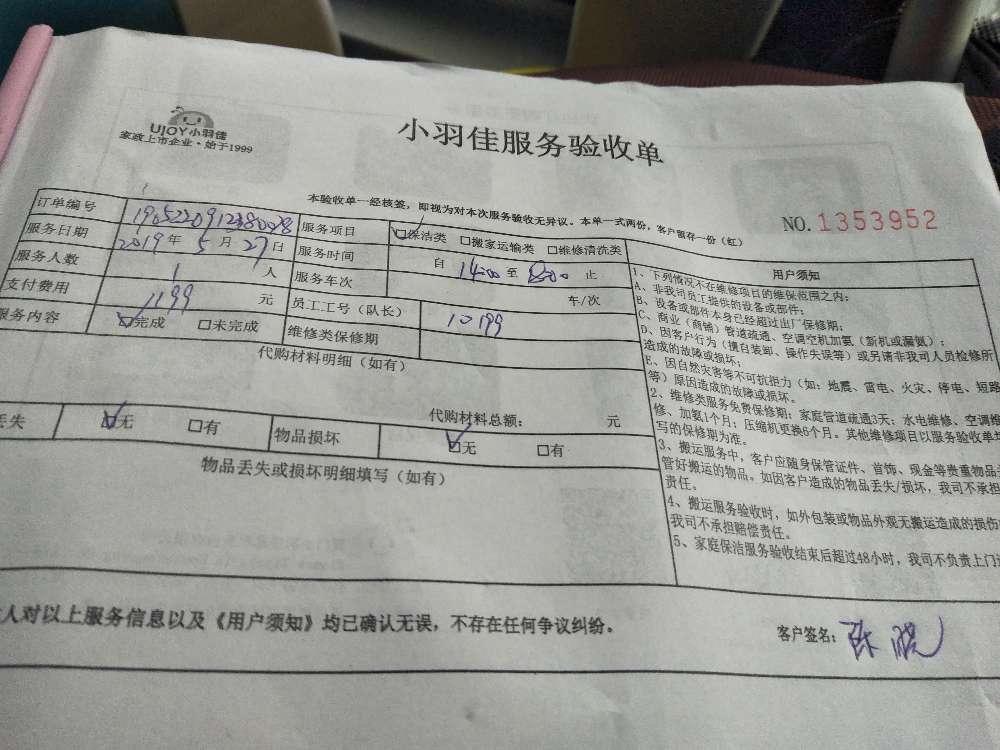 UJOY小羽佳
家政上市企业·始于1999
小羽佳服务验收单
本验收单一经核签,即视为对本次服务验收无异议。本单一式两份,客户留存一份(红)
NO.1353952
订单编号 服务项目 保洁类 □搬家运输类 □维修清洗类
服务日期 2019年5月27日 服务时间 自 14:00 至 止
服务人数 1 人 服务车次 车/次
支付费用 元 员工工号(队长) 10199
服务内容 完成 □未完成 维修类保修期
代购材料明细(如有)
代购材料总额: 元
丢失 无 □有 物品损坏 无 □有
物品丢失或损坏明细填写(如有)
用户须知
1、下列情况不在维修项目的维保范围之内:
A、非我司员工提供的设备或部件;
B、设备或部件本身已经超过出厂保修期;
C、商业(商铺)管道疏通、空调空机加氨(新机或漏氨);
D、因客户行为(擅自装卸、操作失误等)或另请非我司人员检修所
造成的故障或损坏;
E、因自然灾害等不可抗拒力(如:地震、雷电、火灾、停电、短路
等)原因造成的故障或损坏。
2、维修类服务免费保修期:家庭管道疏通3天;水电维修、空调维
修、加氨1个月;压缩机更换6个月。其他维修项目以服务验收单填
写的保修期为准。
3、搬运服务中,客户应随身保管证件、首饰、现金等贵重物品
管好搬运的物品。如因客户造成的物品丢失/损坏,我司不承担
责任。
4、搬运服务验收时,如外包装或物品外观无搬运造成的损伤
我司不承担赔偿责任。
5、家庭保洁服务验收结束后超过48小时,我司不负责上门
人对以上服务信息以及《用户须知》均已确认无误,不存在任何争议纠纷。
客户签名: